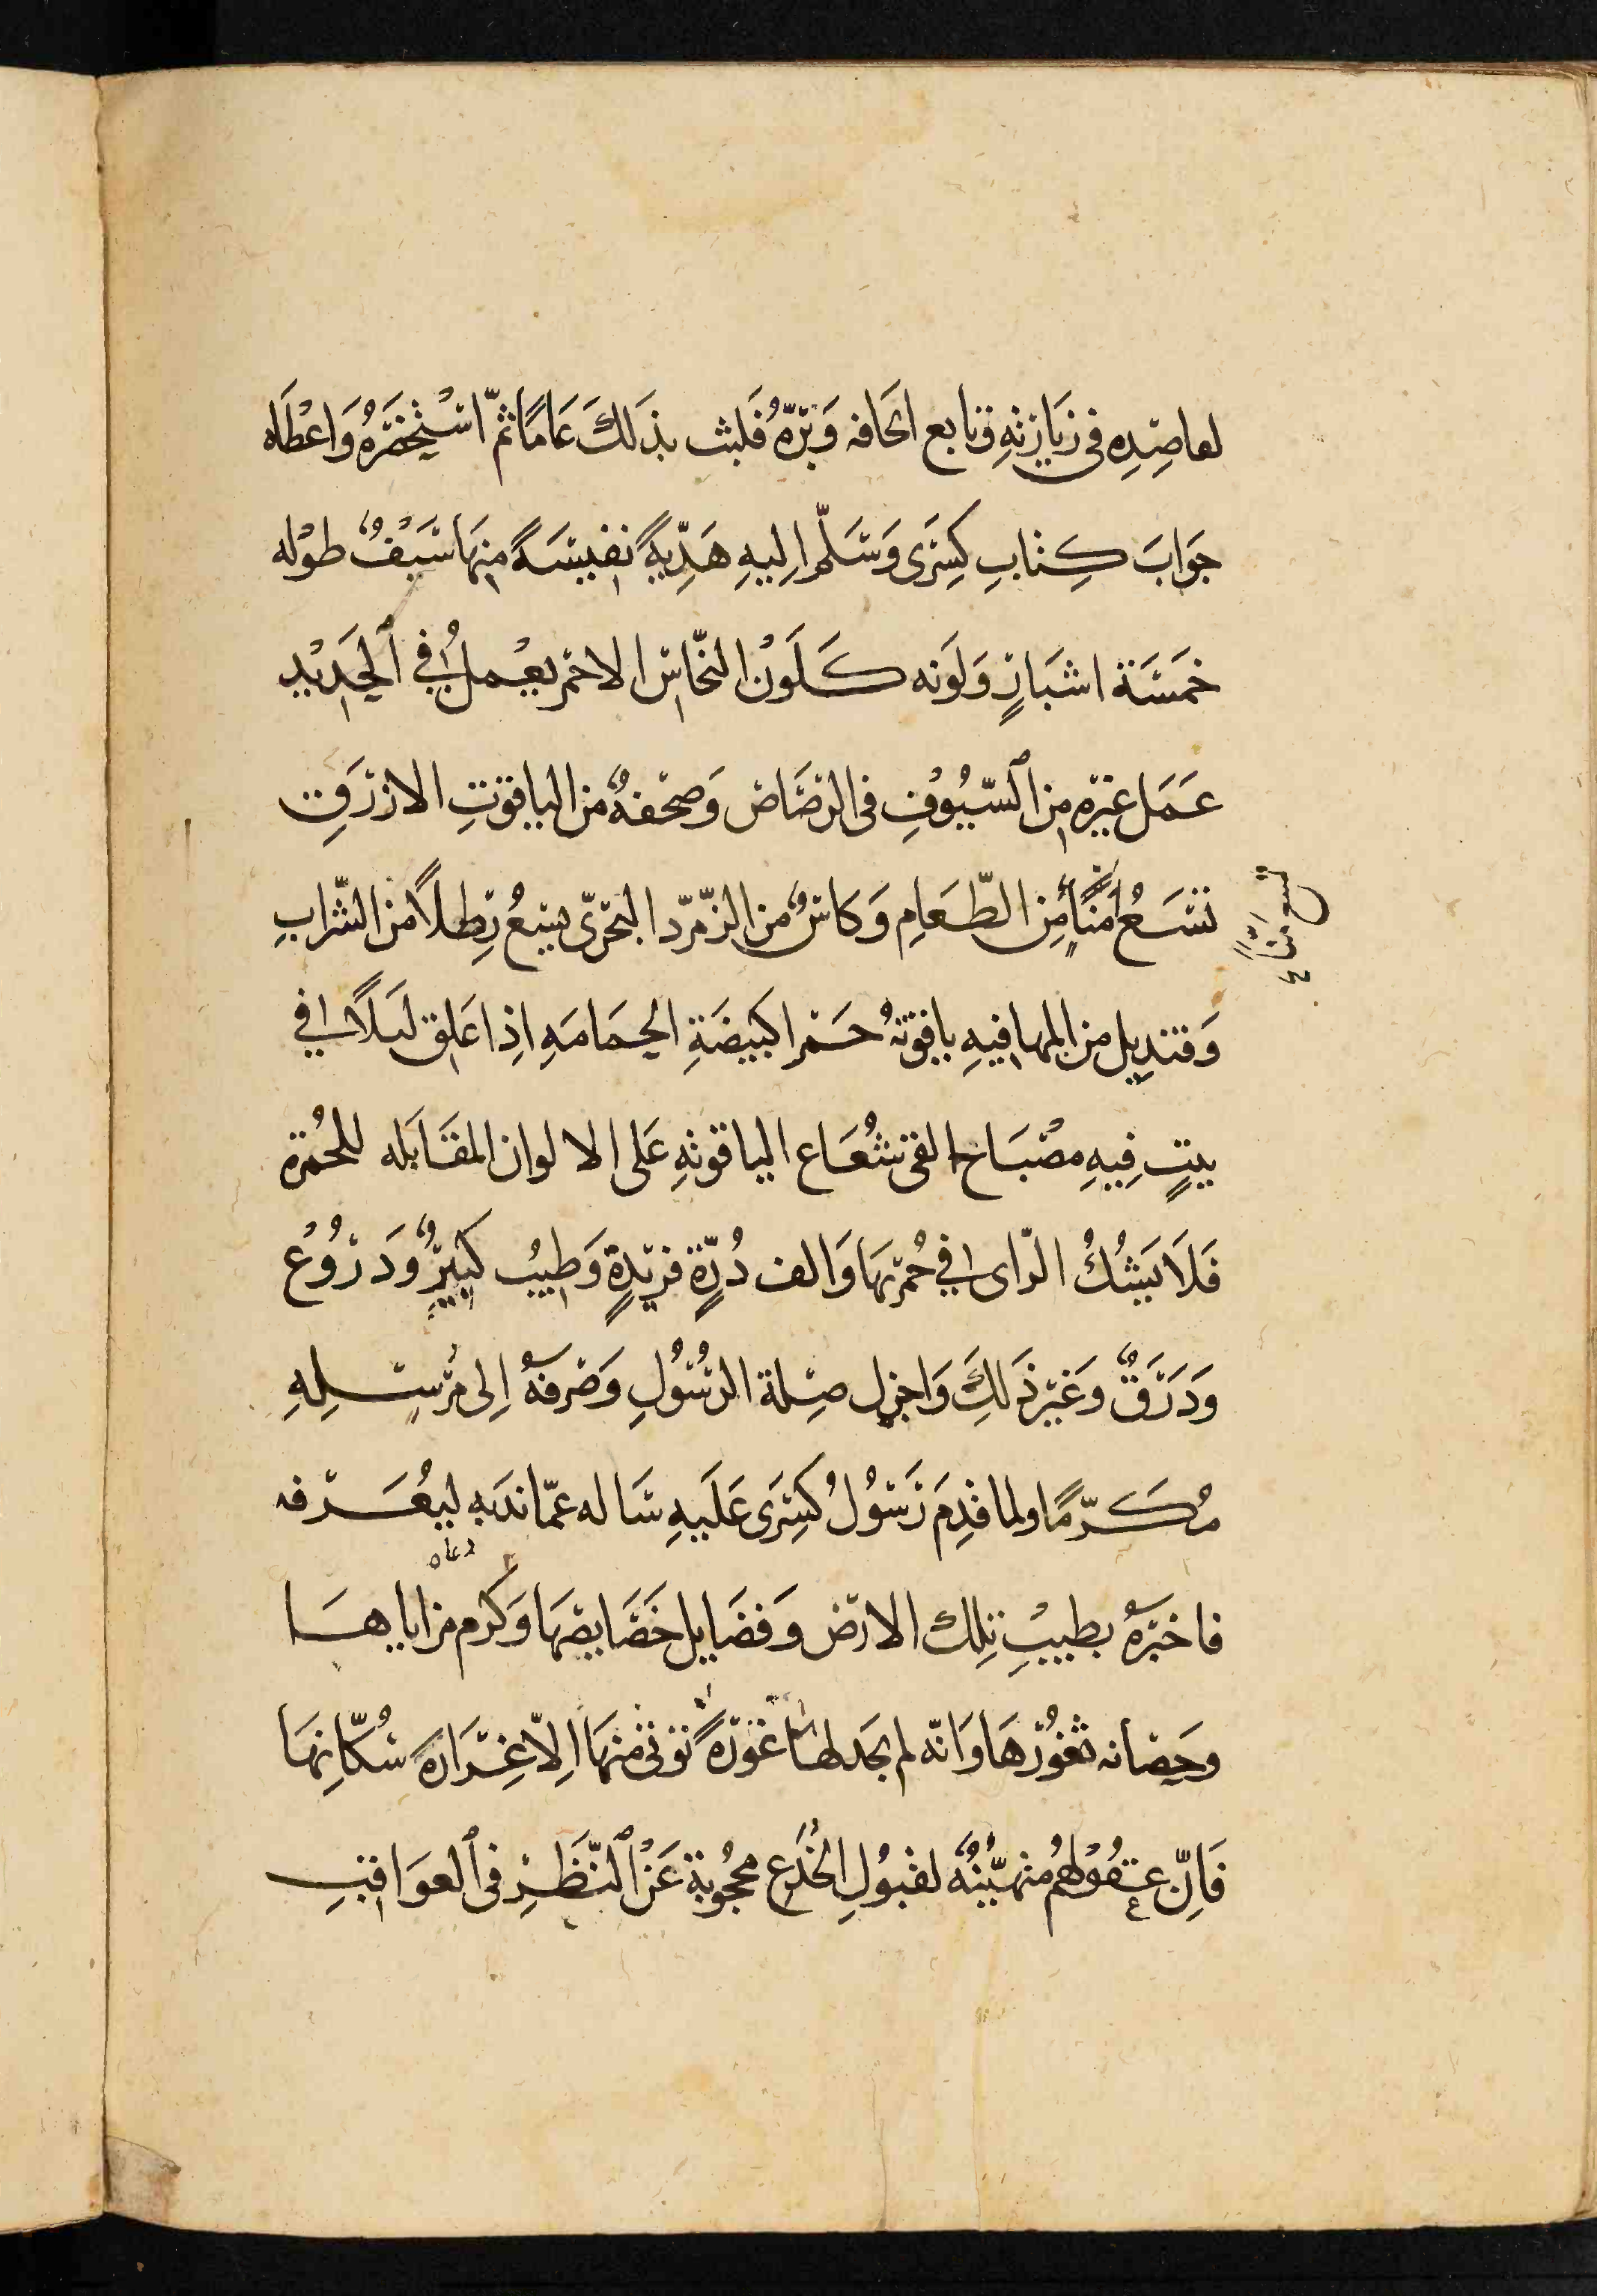 لقاصِدِه فى زِيَارَتِهِ وَتابع اتحَافه وَبرّهُ فَلبث بذَلكَ عَامًا ثمّ اسْتحْضَرَهُ وَاعْطَاه
جَوَابَ كِتابِ كِسْرَى وَسَلّمَ اِليهِ هَدِيّةً نفيسَةً مِنهَا سَيْفٌ طوْله
خمَسَة اشبَارٍ وَلَونه كَلَوْن النّحَاس الاحمَر يعْمل في اَلحَدِيْدِ
عَمَل غيَره مِن اَلسّيُوْفِ فى الرّصَاص وَصحْفةٌ من الياقوتِ الازرَقِ
تسَعُ مَنًا مِن الطّعَامِ وَكاسٌ من الزّمرّد البَحْرىّ يسَعُ رِطلاً من الشّرابِ
وَقندِيل من المها فيهِ ياقوتهُ حَمْرا كبيضَةِ الحمَامَهِ اِذا عَلِق لَيلاً في
بيتٍ فِيهِ مصْبَاح القى شُعَاع الياقوتهِ عَلى الالوان المقَابَله للحُمَرة
فَلاَ يَشُكُ الرّاى في حُمْرتهَا وَالف دُرّةٍ فرِيْدةٍ وَطِيْبٌ كَثيرٌ وَدرُوْعٌ
وَدَرَقٌ وَغيَر ذَلِكَ وَاجزل صِلة الرّسُوْلِ وَصَرفهُ اِلى مُرْسِلِهِ
مُكَرّمًا ولما قدِمَ رَسُوْلُ كِسْرَى عَلَيهِ سَاله عمّا ندَبه ليعُرَفه
دعاه
فاخبَرهُ بطيبِ تِلك الارَض وَفضَايل خَصَايصهَا وَكرم مزاياهَا
وحَصَانه ثغُوْرهَا وَانّه لم يجد لهَا عَوْرةً تؤتى منهَا اِلاّ غِرَارة سُكّانِهَا
فَاِنّ عقُوْلهُمْ متهيّئةٌ لقبُولِ الخُدَع محجُوبة عَن اَلنّظَرِ فى اَلعوَاقبِ